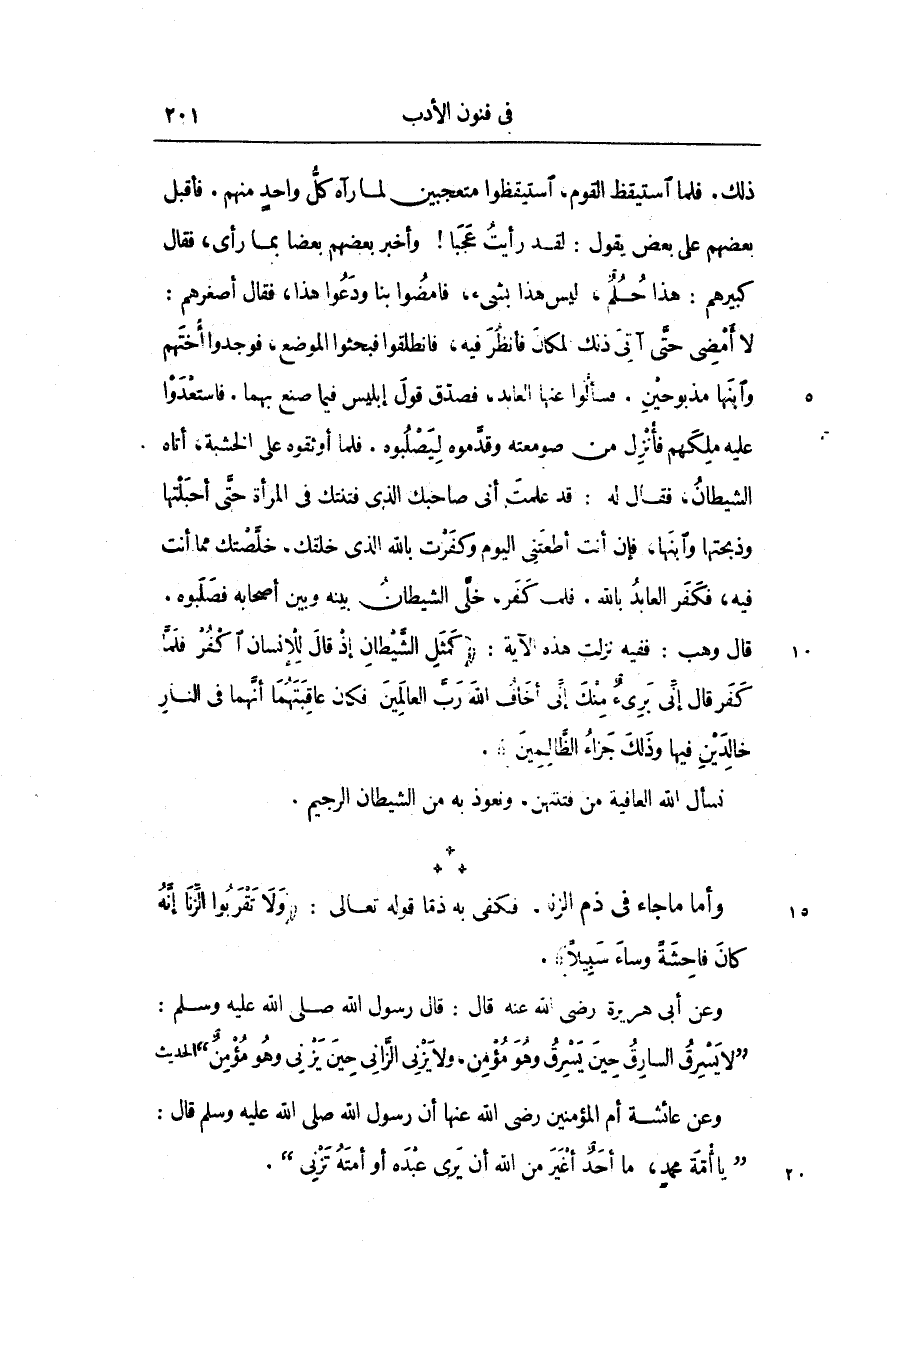 فى فنون الأدب ٢٠١
ذلك. فلما ٱستيقظ القوم، ٱستيقظوا متعجبين لما رآه كلُّ واحدٍ منهم. فأقبل
بعضهم على بعض يقول: لقد رأيتُ عَجَبًا! وأخبر بعضهم بعضا بما رأى، فقال
كبيرهم: هذا حُلُمٌ، ليس هذا بشىء، فامضُوا بنا ودَعُوا هذا، فقال أصغرهم:
لا أَمْضِى حتَّى آتىَ ذلك المكانَ فأنظُرَ فيه، فانطلقوا فبحثوا الموضع، فوجدوا أُختَهم
وٱبنَها مذبوحَيْنِ. فسألوا عنها العابد، فصدّق قولَ إبليس فيما صنع بهما. فاستَعْدَوْا ٥
عليه ملِكَهم فأُنْزِل من صومعته وقدّموه لِيَصْلُبوه. فلما أوثقوه على الخشبة، أتاه
الشيطانُ، فقال له: قد علمتَ أنى صاحبك الذى فتنتك فى المرأة حتَّى أحبَلْتَها
وذبحتها وٱبنَها، فإن أنت أطعتَنِى اليوم وكفَرْت بالله الذى خلقك. خلَّصْتك مما أنت
فيه، فكَفَر العابدُ بالله. فلما كَفَر. خلَّى الشيطانُ بينه وبين أصحابه فصَلَبوه.
قال وهب: ففيه نزلت هذه الآية: ﴿كَمَثَلِ الشَّيْطانِ إذْ قالَ لِلْإنسان ٱكْفُرْ فَلَمَّا ١٠
كَفَر قال إنِّى بَرِىءٌ مِنْكَ إنِّى أخَافُ اللهَ رَبَّ العالَمِينَ فكان عاقِبَتَهُمَا أنَّهما فى النارِ
خالِدَيْنِ فيها وذَلكَ جَزاءُ الظَّالِمِينَ﴾.
نسأل الله العافية من فتنتهن. ونعوذ به من الشيطان الرجيم.
وأما ماجاء فى ذم الزنا. فكفى به ذمّا قوله تعالى: ﴿وَلَا تَقْرَبُوا الزِّنَا إنَّهُ ١٥
كانَ فاحِشَةً وساءَ سَبِيلاً﴾.
وعن أبى هريرة رضى الله عنه قال: قال رسول الله صلى الله عليه وسلم:
”لا يَسْرِقُ السارِقُ حِينَ يَسْرِقُ وهُوَ مُؤْمِن. ولا يَزْنِى الزَّانِى حِينَ يَزْنِى وهُو مُؤْمِنٌ“ الحديث
وعن عائشة أم المؤمنين رضى الله عنها أن رسول الله صلى الله عليه وسلم قال:
”يا أُمَّة محمدٍ، ما أحَدٌ أغْيَرَ من الله أن يَرى عبْدَه أو أمتَهُ تَزْنِى“. ٢٠